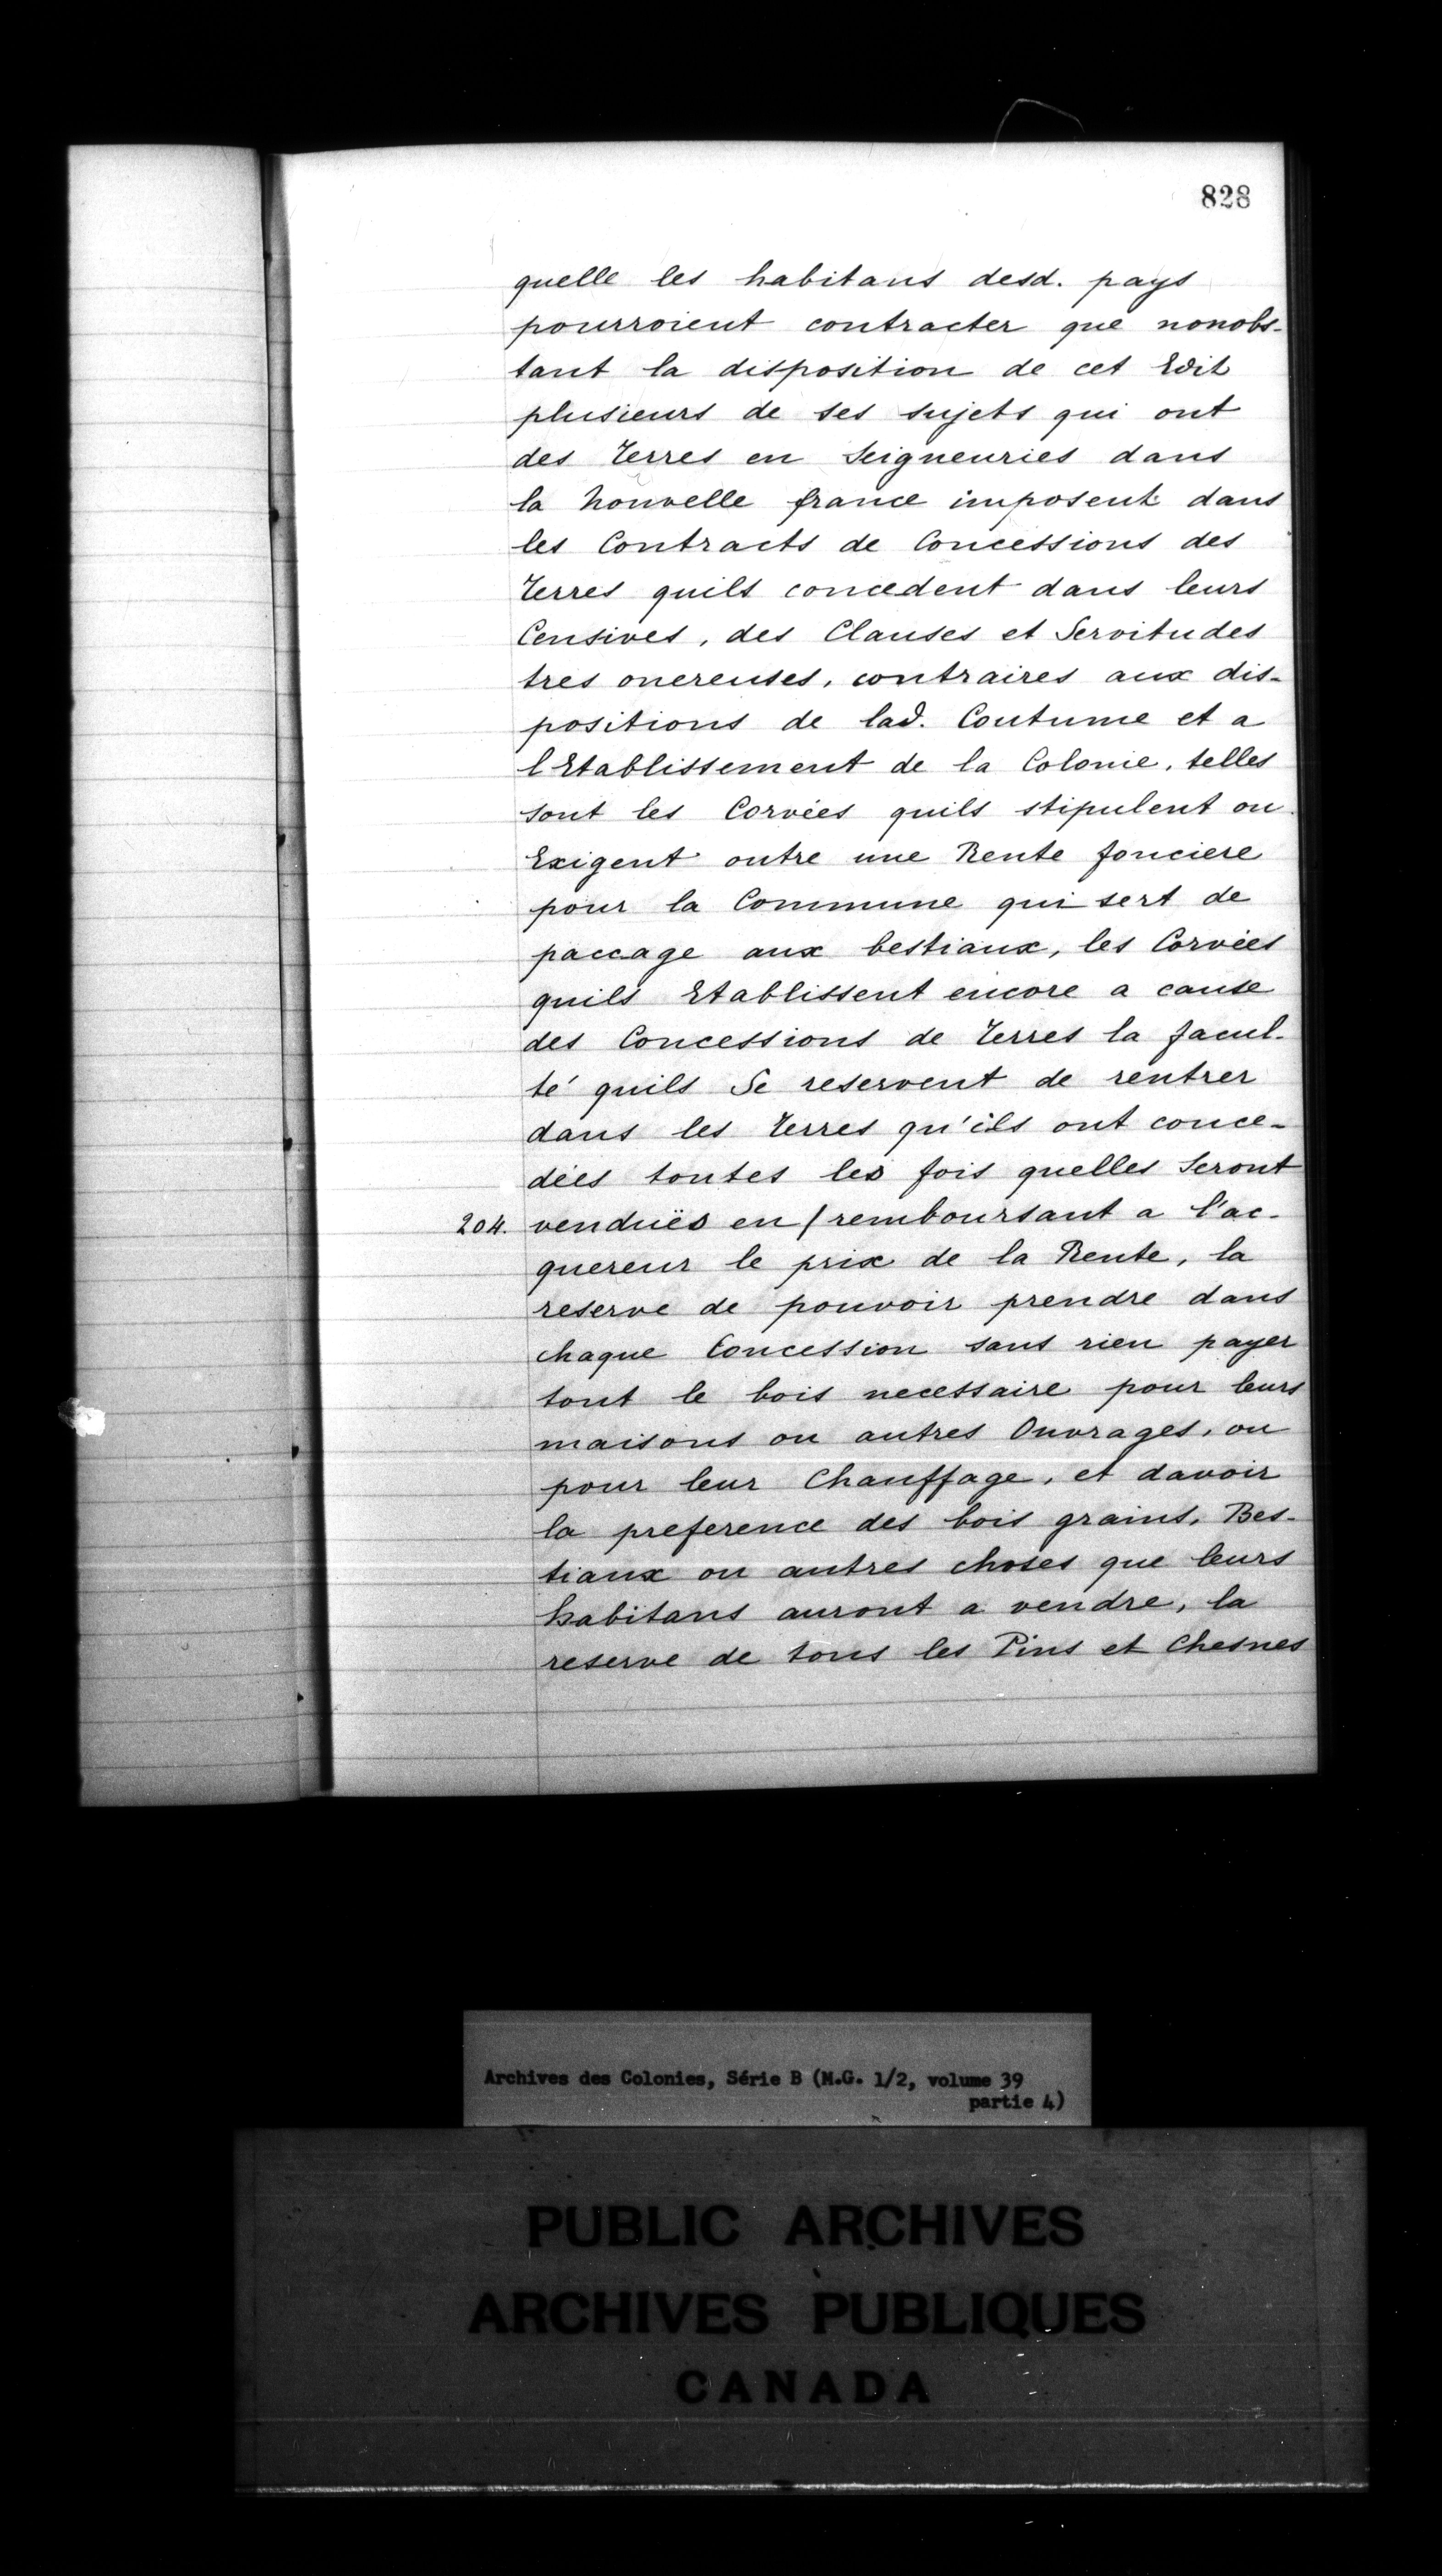 828
quelle les habitans desd. pays
pourroient contracter que nonobs-
tant la disposition de cet Edit
plusieurs de ses sujets qui ont
des Terres en Seigneuries dans
la Nouvelle france imposent dans
les Contracts de Concessions des
Terres quils concedent dans leurs
Censives, des Clauses et Servitudes
tres onereuses, contraires aux dis-
positions de lad. Coutume et a
l'Etablissement de la Colonie, telles
sont les Corvées quils stipulent ou
Exigent outre une Rente fonciere
pour la Commune qui sert de
paccage aux bestiaux, les Corvées
quils Etablissent encore a cause
des Concessions de Terres la facul-
té quils Se reservent de rentrer
dans les Terres qu'ils ont conce-
dées toutes les fois quelles Seront
204. venduës en / remboursant a l'ac-
quereur le prix de la Rente, la
reserve de pouvoir prendre dans
chaque Concession sans rien payer
tout le bois necessaire pour leurs
maisons ou autres Ouvrages, ou
pour leur Chauffage, et davoir
la preference des bois grains, Bes-
tiaux ou autres choses que leurs
habitans auront a vendre, la
reserve de tous les Pins et Chesnes
Archives des Colonies, Série B (M.G. 1/2, volume 39
partie 4)
PUBLIC ARCHIVES
ARCHIVES PUBLIQUES
CANADA